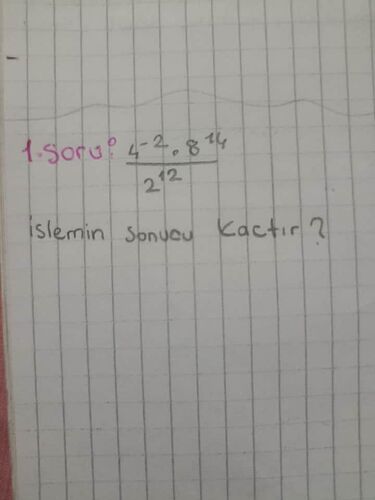 1. Soru: 4⁻² . 8¹⁴
2¹²
işlemin sonucu kaçtır?